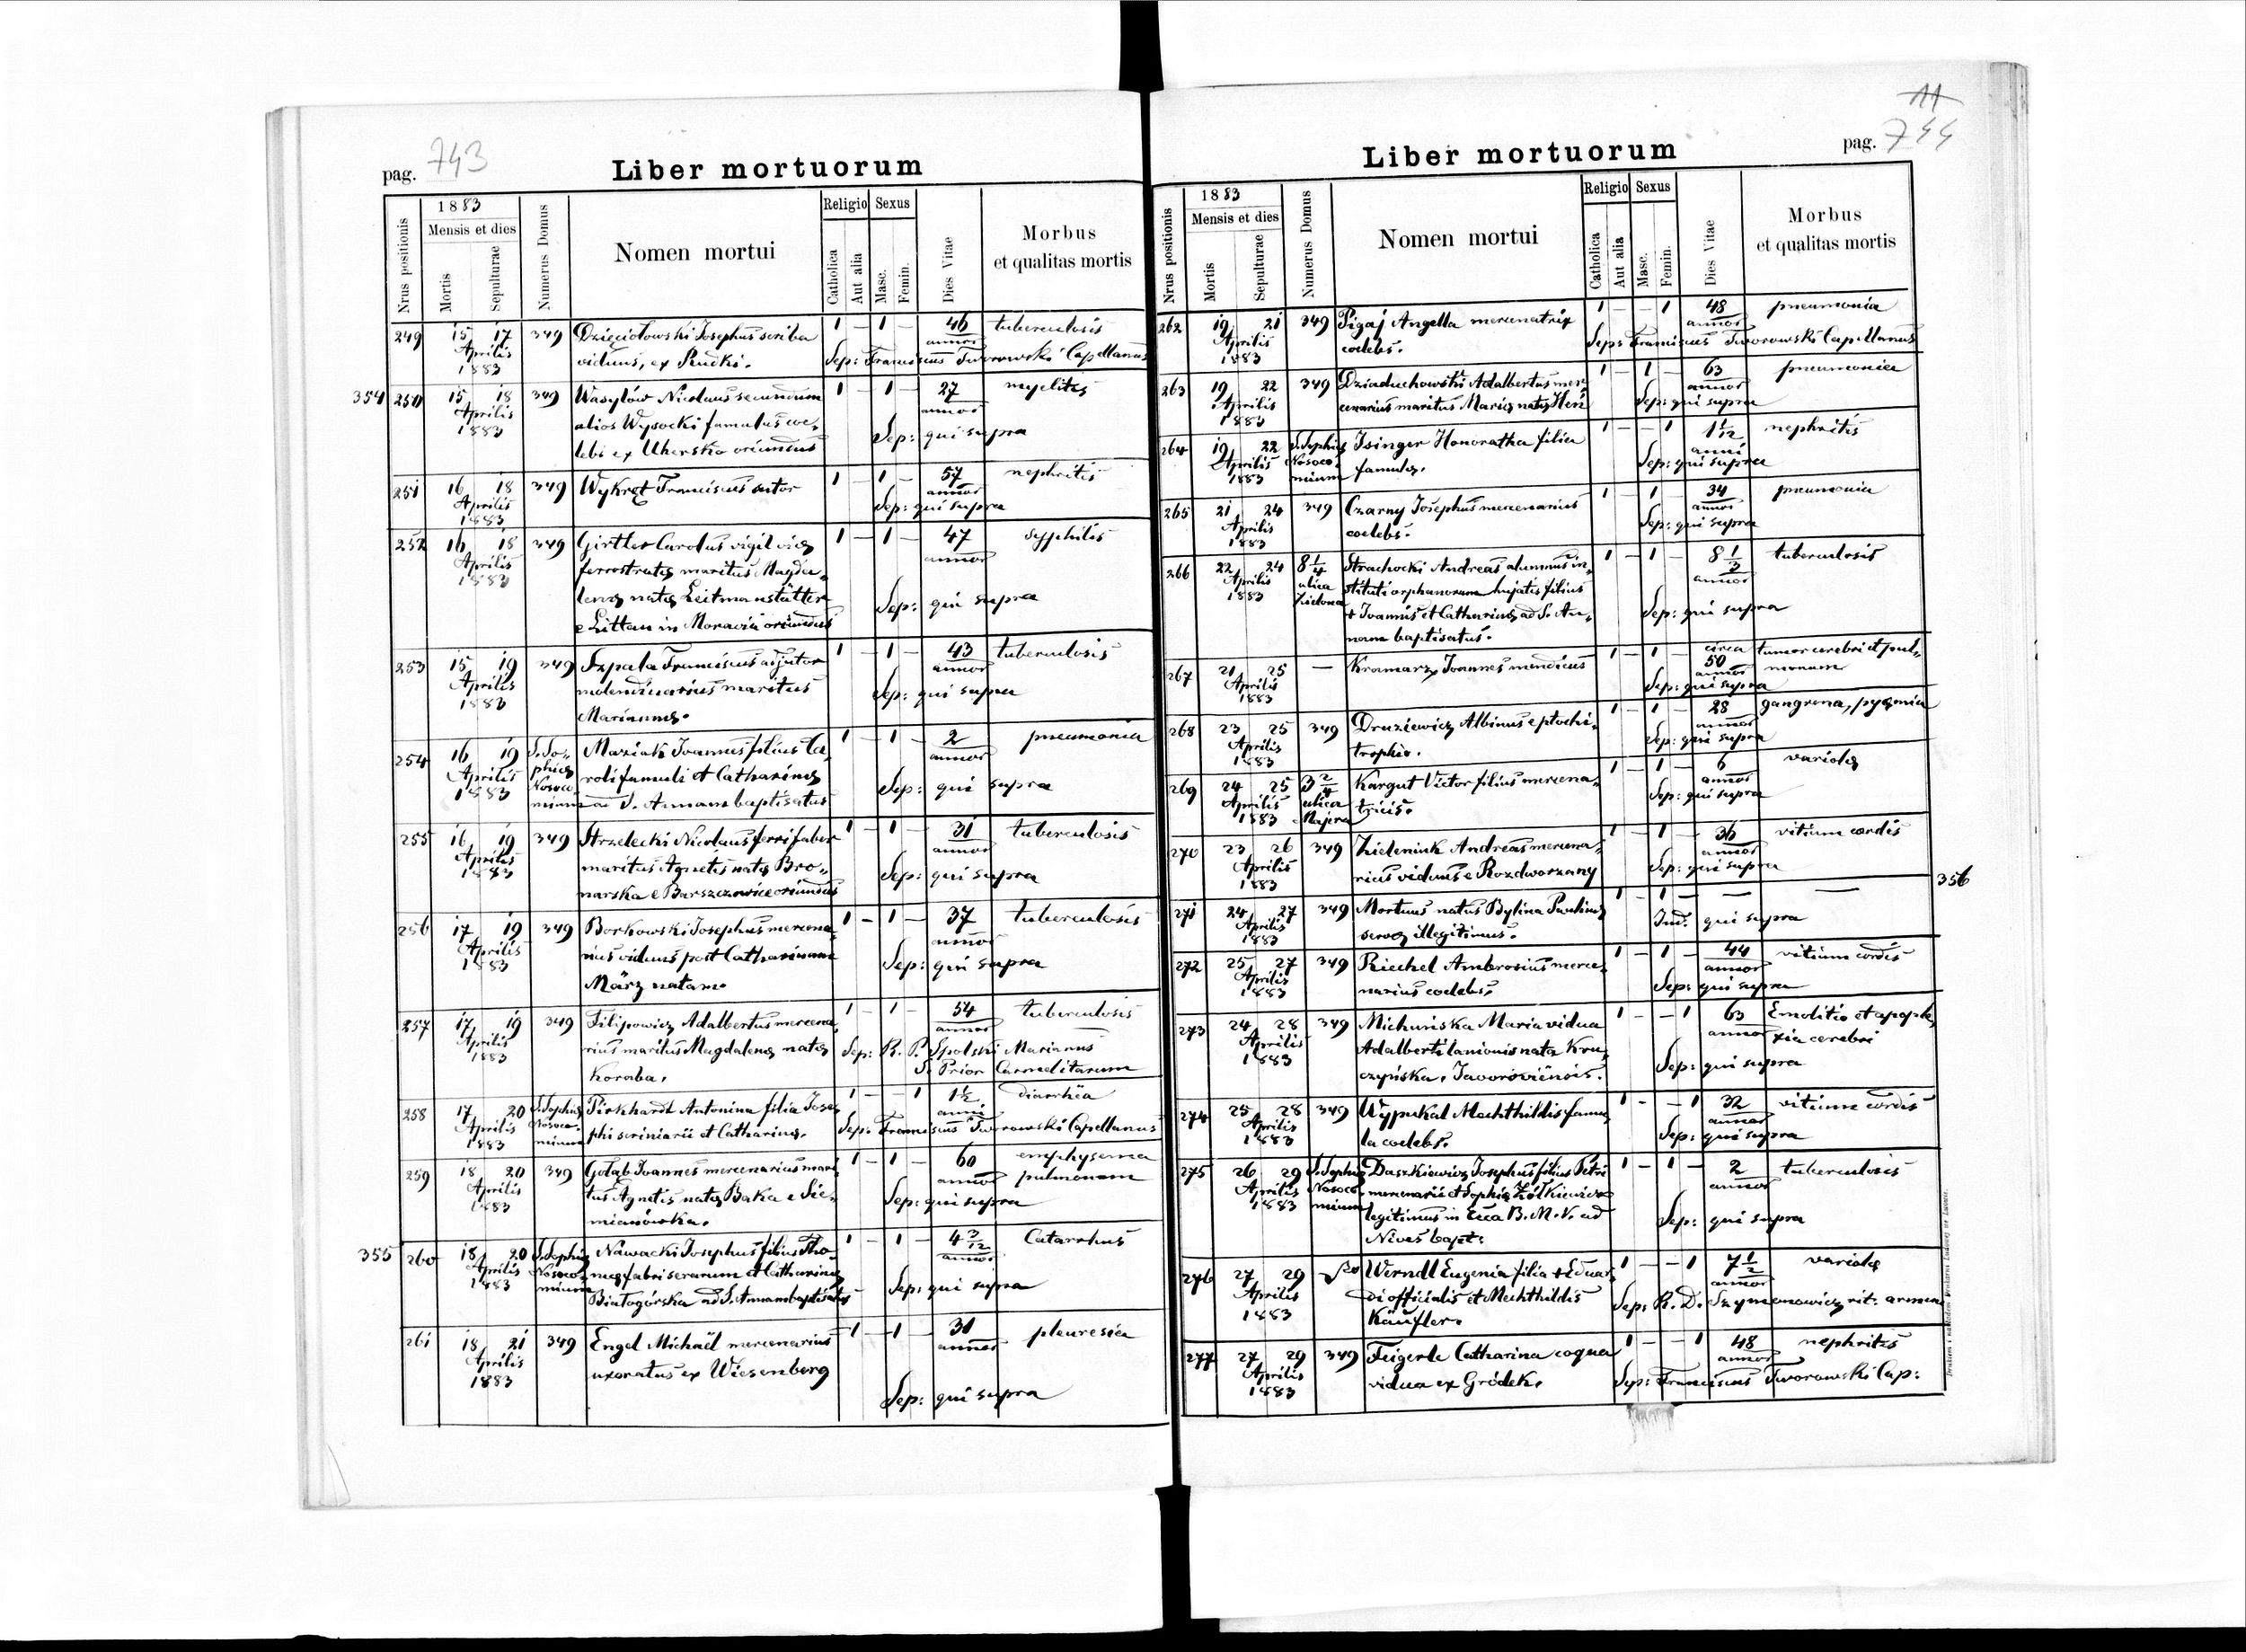 pag. 743
Liber mortuorum
Nrus positionis
1883
Mensis et dies
Mortis
Sepulturae
Numerus Domus
Nomen mortui
Religio
Catholica
Aut alia
Sexus
Masc.
Femin.
Dies Vitae
Morbus
et qualitas mortis
249 15 17 349 Dzięciołowski Josephus scriba 1 — 1 — 46 tuberculosis
Aprilis viduus, ex Rudki. annor
1883 Sep: Franciscus Tworowski Capellanus
354 250 15 18 349 Wasylów Nicolaus secundum 1 — 1 — 27 myelites
Aprilis alios Wysocki famulus coe, annor
1883 lebs ex Uhersko oriundus Sep: qui supra
251 16 18 349 Wykręt Franciscus sutor 1 — 1 — 57 nephritis
Aprilis annor
1883 Sep: qui supra
252 16 18 349 Girtler Carolus vigil viæ 1 — 1 — 47 syphilis
Aprilis ferrostratæ maritus Magda, annor
1883 lenæ natæ Leitmanstätter Sep: qui supra
e Littau in Moravia oriundus
253 15 19 349 Szpala Franciscus adjutor 1 — 1 — 43 tuberculosis
Aprilis molendinarius maritus annor
1883 Mariannæ. Sep: qui supra
254 16 19 S. So, Maziak Joannes filius Ca, 1 — 1 — 2 pneumonia
Aprilis phiæ roli famuli et Catharinæ annor
1883 Nosoco, minm ad S. Annam baptisatus Sep: qui supra
255 16 19 349 Strzelecki Nicolaus ferri faber 1 — 1 — 31 tuberculosis
Aprilis maritus Agnetis natæ Bro, annor
1883 narska e Barszczowice oriundus Sep: qui supra
256 17 19 349 Borkowski Josephus mercena, 1 — 1 — 37 tuberculosis
Aprilis rius viduus post Catharinam annor
1883 März natam. Sep: qui supra
257 17 19 349 Filipowicz Adalbertus mercena, 1 — 1 — 54 tuberculosis
Aprilis rius maritus Magdalenæ natæ annor
1883 Koraba. Sep: R. P. Spolski Marianus
S. Prior Carmelitarum
258 17 20 S. Sophiæ Pirkhardt Antonina filia Jose, 1 — — 1 1½ diarrhëa
Aprilis Nosoco, phi scriniarii et Catharinæ. anni
1883 minm Sep: Franciscus Tworowski Capellanus
259 18 20 349 Gołąb Joannes mercenarius mari, 1 — 1 — 60 emphysema
Aprilis tus Agnetis natæ Baka e Sie, annor pulmonum
1883 mianówka. Sep: qui supra
355 260 18 20 S. Sophiæ Nawacki Josephus filius Tho, 1 — 1 — 4 3/12 Catarrhus
Aprilis Nosoco, mæ fabri serarum et Catharinæ annor
1883 minm Białogórska ad S. Annam baptisatus Sep: qui supra
261 18 21 349 Engel Michaël mercenarius 1 — 1 — 31 pleuresia
Aprilis uxoratus ex Wiesenberg annor
1883 Sep: qui supra
11
pag. 744
Liber mortuorum
Nrus positionis
1883
Mensis et dies
Mortis
Sepulturae
Numerus Domus
Nomen mortui
Religio
Catholica
Aut alia
Sexus
Masc.
Femin.
Dies Vitae
Morbus
et qualitas mortis
262 19 21 349 Pigaj Angella mercenatrix 1 — — 1 48 pneumonia
Aprilis coelebs. annor
1883 Sep: Franciscus Tworowski Capellanus
263 19 22 349 Dziaduchowski Adalbertus mer, 1 — 1 — 63 pneumonia
Aprilis cenarius maritus Mariæ natæ Heń annor
1883 Sep: qui supra
264 19 22 S. Sophiæ Isinger Honoratha filia 1 — — 1 1 1/12 nephritis
Aprilis Nosoco, famulæ. anni
1883 minum Sep: qui supra
265 21 24 349 Czarny Josephus mercenarius 1 — 1 — 34 pneumonia
Aprilis coelebs. annor
1883 Sep: qui supra
266 22 24 8 1/4 Strachocki Andreas alumnus in, 1 — 1 — 8 1/3 tuberculosis
Aprilis ulica stituti orphanorum hujatis filius annor
1883 Zielona + Joannis et Catharinæ, ad S. An, Sep: qui supra
nam baptisatus.
267 21 25 — Kramarz Joannes mendicus 1 — 1 — circa 50 tumor cerebri et pul,
Aprilis annor monum
1883 Sep: qui supra
268 23 25 349 Druziewicz Albinus e ptochi, 1 — 1 — 28 gangrena, pyæmia
Aprilis trophio. annor
1883 Sep: qui supra
269 24 25 3 2/4 Kargut Victor filius mercena, 1 — 1 — 6 variolæ
Aprilis ulica tricis. annor
1883 Majera Sep: qui supra
270 23 26 349 Zieleniuk Andreas mercena, 1 — 1 — 36 vitium cordis
Aprilis rius viduus e Rozdworzany annor
1883 Sep: qui supra
356
271 24 27 349 Mortuus natus Bylina Paulinæ 1 — 1 — — —
Aprilis servæ illegitimus. Ind. qui supra
1883
272 25 27 349 Riechel Ambrosius merce, 1 — 1 — 44 vitium cordis
Aprilis narius coelebs. annor
1883 Sep: qui supra
273 24 28 349 Michurska Maria vidua 1 — — 1 63 Emolitio et apople,
Aprilis Adalberti lanionis nata Kru, annor xia cerebri
1883 czyńska, Javoroviensis. Sep: qui supra
274 25 28 349 Wypukał Mechthildis famu, 1 — — 1 32 vitium cordis
Aprilis la coelebs. annor
1883 Sep: qui supra
275 26 29 S. Sophiæ Daszkiewicz Josephus filius Petri 1 — 1 — 2 tuberculosis
Aprilis Nosoco, mercenarii et Sophiæ Żółkiewicz annor
1883 minum legitimus in Ecca B. M. V. ad Sep: qui supra
Nives bapt:
276 27 29 Werndl Eugenia filia + Eduar, 1 — — 1 7 1/2 variolæ
Aprilis di officialis et Mechthildis annor
1883 Käufler. Sep: R. D. Szymonowicz rit: armen
277 27 29 349 Feigerle Catharina coqua 1 — — 1 48 nephritis
Aprilis vidua ex Gródek. annor
1883 Sep: Franciscus Tworowski Cap: